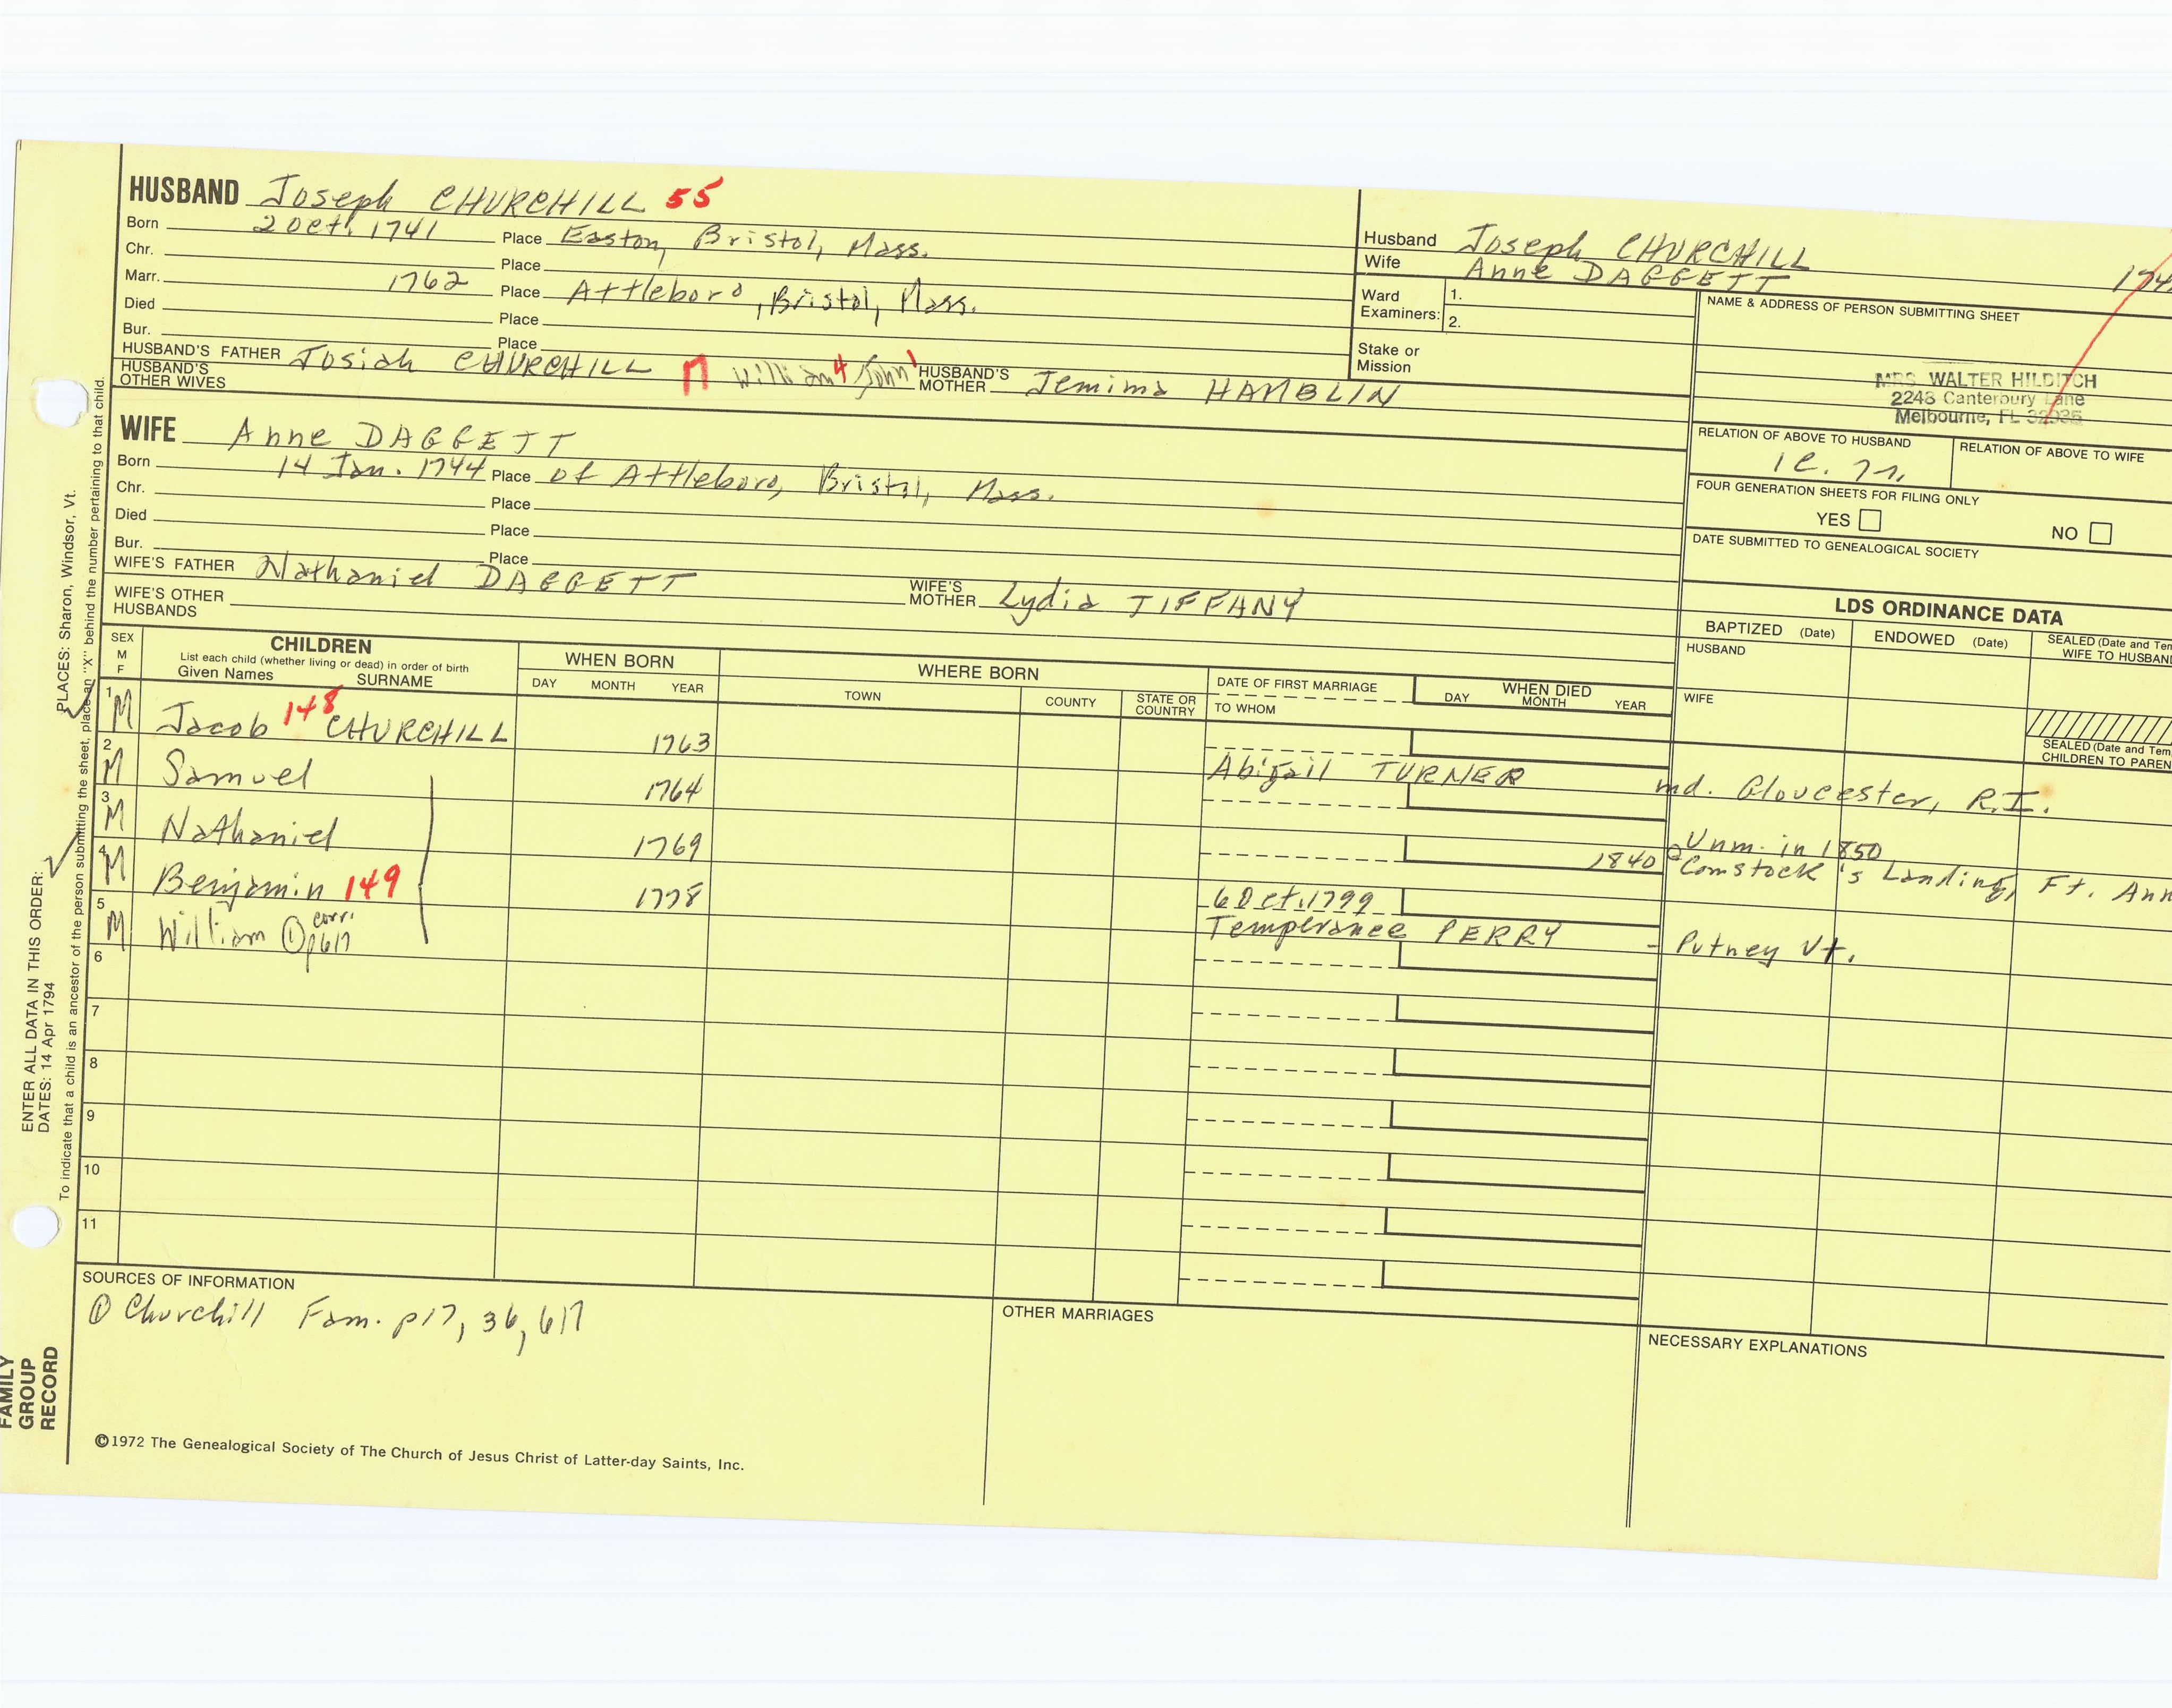 HUSBAND Joseph CHURCHILL 55
Born 2 Oct. 1741 Place Easton, Bristol, Mass.
Chr. Place
Marr. 1762 Place Attleboro, Bristol, Mass.
Died Place
Bur. Place
HUSBAND'S FATHER Josiah CHURCHILL 17 William 4 John 1 HUSBAND'S MOTHER Jemima HAMBLIN
HUSBAND'S OTHER WIVES
WIFE Anne DAGGETT
Born 14 Jan. 1744 Place of Attleboro, Bristol, Mass.
Chr. Place
Died Place
Bur. Place
WIFE'S FATHER Nathaniel DAGGETT WIFE'S MOTHER Lydia TIFFANY
WIFE'S OTHER HUSBANDS
Husband Joseph CHURCHILL
Wife Anne DAGGETT
174
Ward Examiners: 1.
2.
Stake or Mission
NAME & ADDRESS OF PERSON SUBMITTING SHEET
MRS. WALTER HILDITCH
2248 Canterbury Lane
Melbourne, FL 32935
RELATION OF ABOVE TO HUSBAND
RELATION OF ABOVE TO WIFE
FOUR GENERATION SHEETS FOR FILING ONLY
YES NO
DATE SUBMITTED TO GENEALOGICAL SOCIETY
LDS ORDINANCE DATA
BAPTIZED (Date) ENDOWED (Date) SEALED (Date and Tem
WIFE TO HUSBAN
HUSBAND
WIFE
SEALED (Date and Tem
CHILDREN TO PAREN
SEX M F
CHILDREN
List each child (whether living or dead) in order of birth
Given Names SURNAME
WHEN BORN
DAY MONTH YEAR
WHERE BORN
TOWN COUNTY STATE OR COUNTRY
DATE OF FIRST MARRIAGE
TO WHOM
WHEN DIED
DAY MONTH YEAR
1 M Jacob 148 CHURCHILL 1763
Abigail TURNER md. Gloucester, R.I.
2 M Samuel 1764
3 M Nathaniel 1769 Unm. in 1850
1840 @ Comstock's Landing, Ft. Ann
4 M Benjamin 149 1778 6 Oct. 1799
Temperance PERRY - Putney Vt.
5 M William ① corr. p617
6
7
8
9
10
11
SOURCES OF INFORMATION
① Churchill Fam. p17, 36, 617
OTHER MARRIAGES
NECESSARY EXPLANATIONS
©1972 The Genealogical Society of The Church of Jesus Christ of Latter-day Saints, Inc.
FAMILY GROUP RECORD
ENTER ALL DATA IN THIS ORDER:
DATES: 14 Apr 1794
PLACES: Sharon, Windsor, Vt.
To indicate that a child is an ancestor of the person submitting the sheet, place an "X" behind the number pertaining to that child.